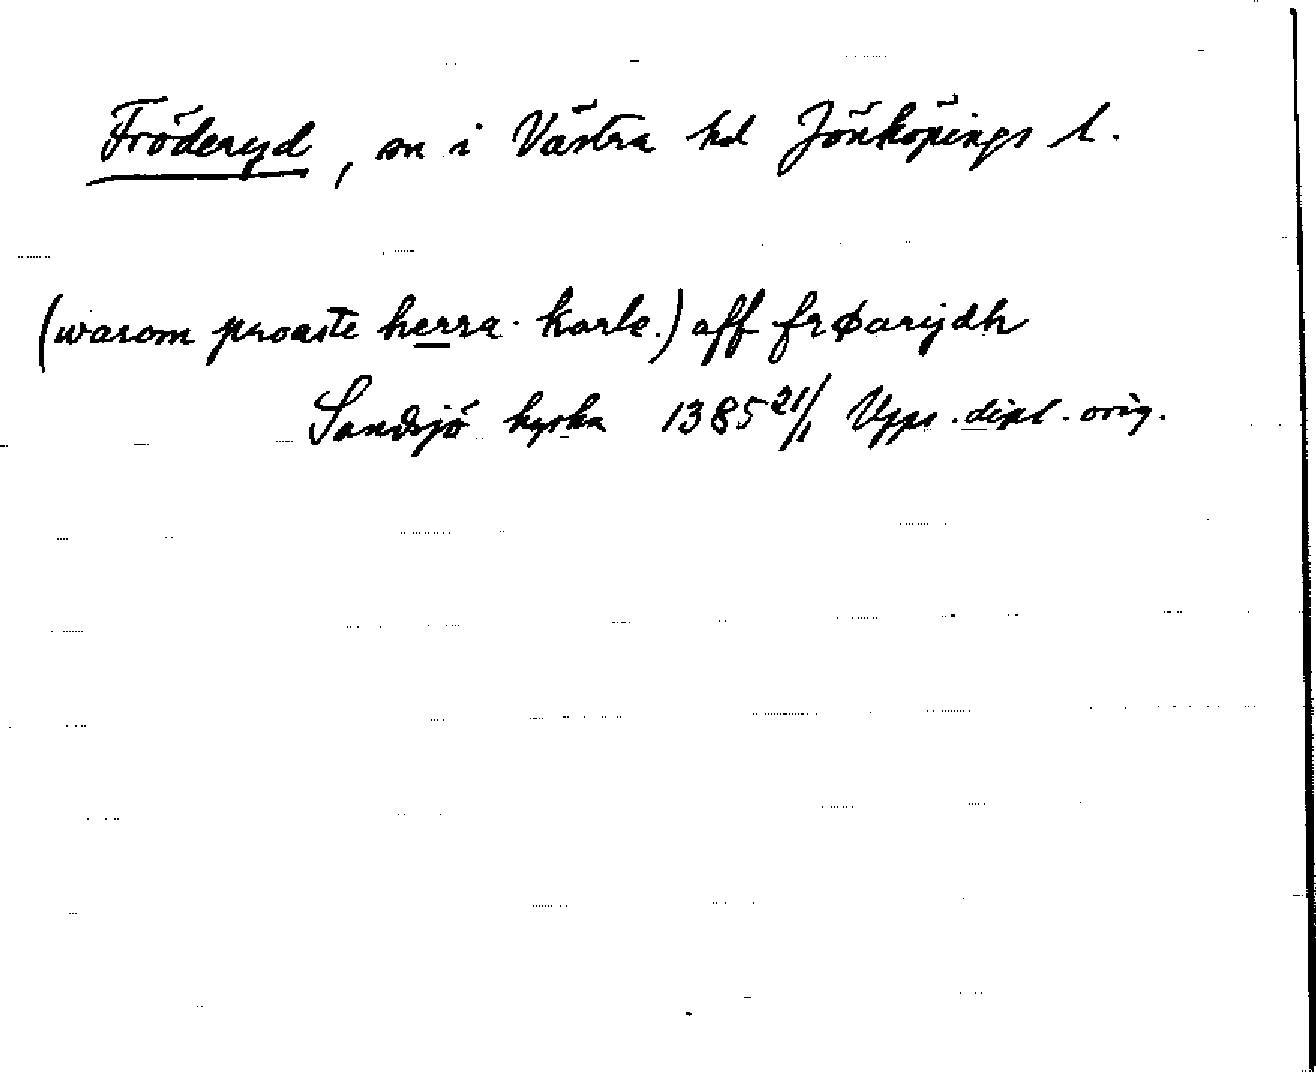 Fröderyd, sn i Västra hd Jönköpings l.
(warom proaste herra karle.) aff frøarijdh
Sandsjö kyrka 1385 21/1 Upps. dipl. orig.